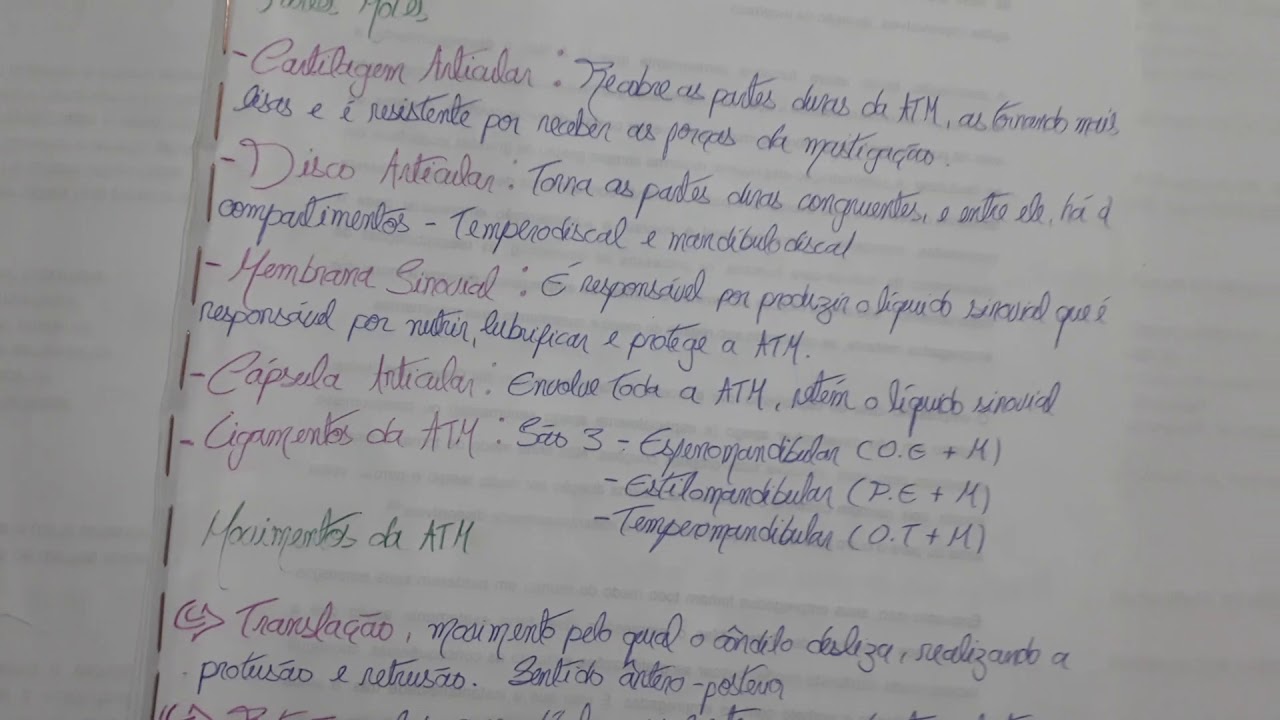 Partes Moles
- Cartilagem Articular : Recobre as partes duras da ATM, as tornando mais
lisas e é resistente por receber as forças da mastigação.
- Disco Articular : Torna as partes duras congruentes, e entre ele, há 2
compartimentos - Temperodiscal e mandibulodiscal
- Membrana Sinovial : É responsável por produzir o líquido sinovial que é
responsável por nutrir, lubrificar e protege a ATM.
- Cápsula Articular : Envolve toda a ATM, retém o líquido sinovial
- Ligamentos da ATM : São 3 - Esfenomandibular (O.E + M)
- Estilomandibular (P.E + M)
- Temperomandibular (O.T + M)
Movimentos da ATM
Translação, movimento pelo qual o côndilo desliza, realizando a
protusão e retrusão. Sentido ântero-postero